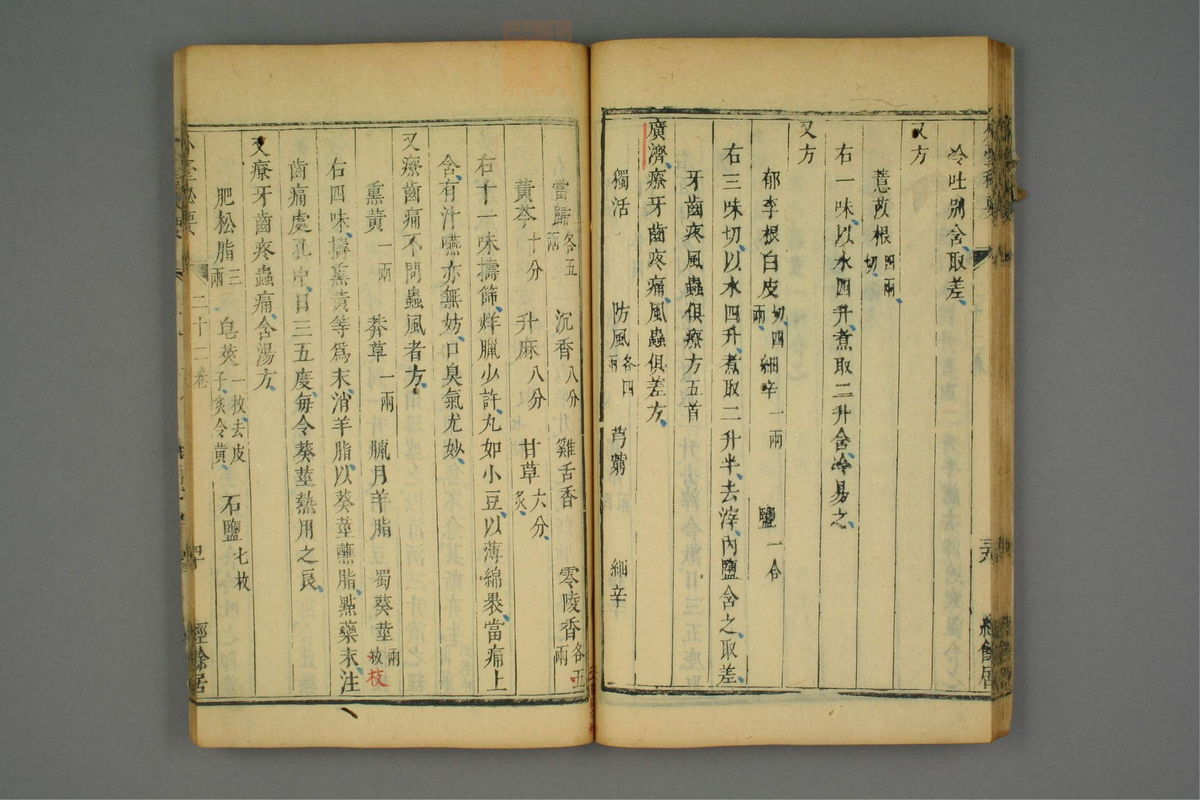 冷吐别含取差
又方
薏苡根四兩切
右一味以水四升煮取二升含冷易之
又方
郁李根白皮切四兩 細辛一兩 鹽一合
右三味切以水四升煮取二升半去滓內鹽含之取差
牙齒疼風蟲俱療方五首
廣濟療牙齒疼痛風蟲俱差方
獨活 防風各四兩 芎藭 細辛
當歸各五兩 沉香八分 雞舌香 零陵香各五兩
黃芩十分 升麻八分 甘草六分炙
右十一味擣篩烊臘少許丸如小豆以薄綿裹當痛上
含有汁嚥亦無妨口臭氣尤妙
又療齒痛不問蟲風者方
熏黃一兩 莽草一兩 臘月羊脂 蜀葵莖兩枚枝
右四味擣熏黃等爲末消羊脂以葵莖蘸脂點藥末注
齒痛處孔中日三五度每令葵莖熱用之良
又療牙齒疼蟲痛含湯方
肥松脂三兩 皂莢一枚去皮子炙令黃 石鹽七枚
外臺秘要 二十二卷 四十 經餘居